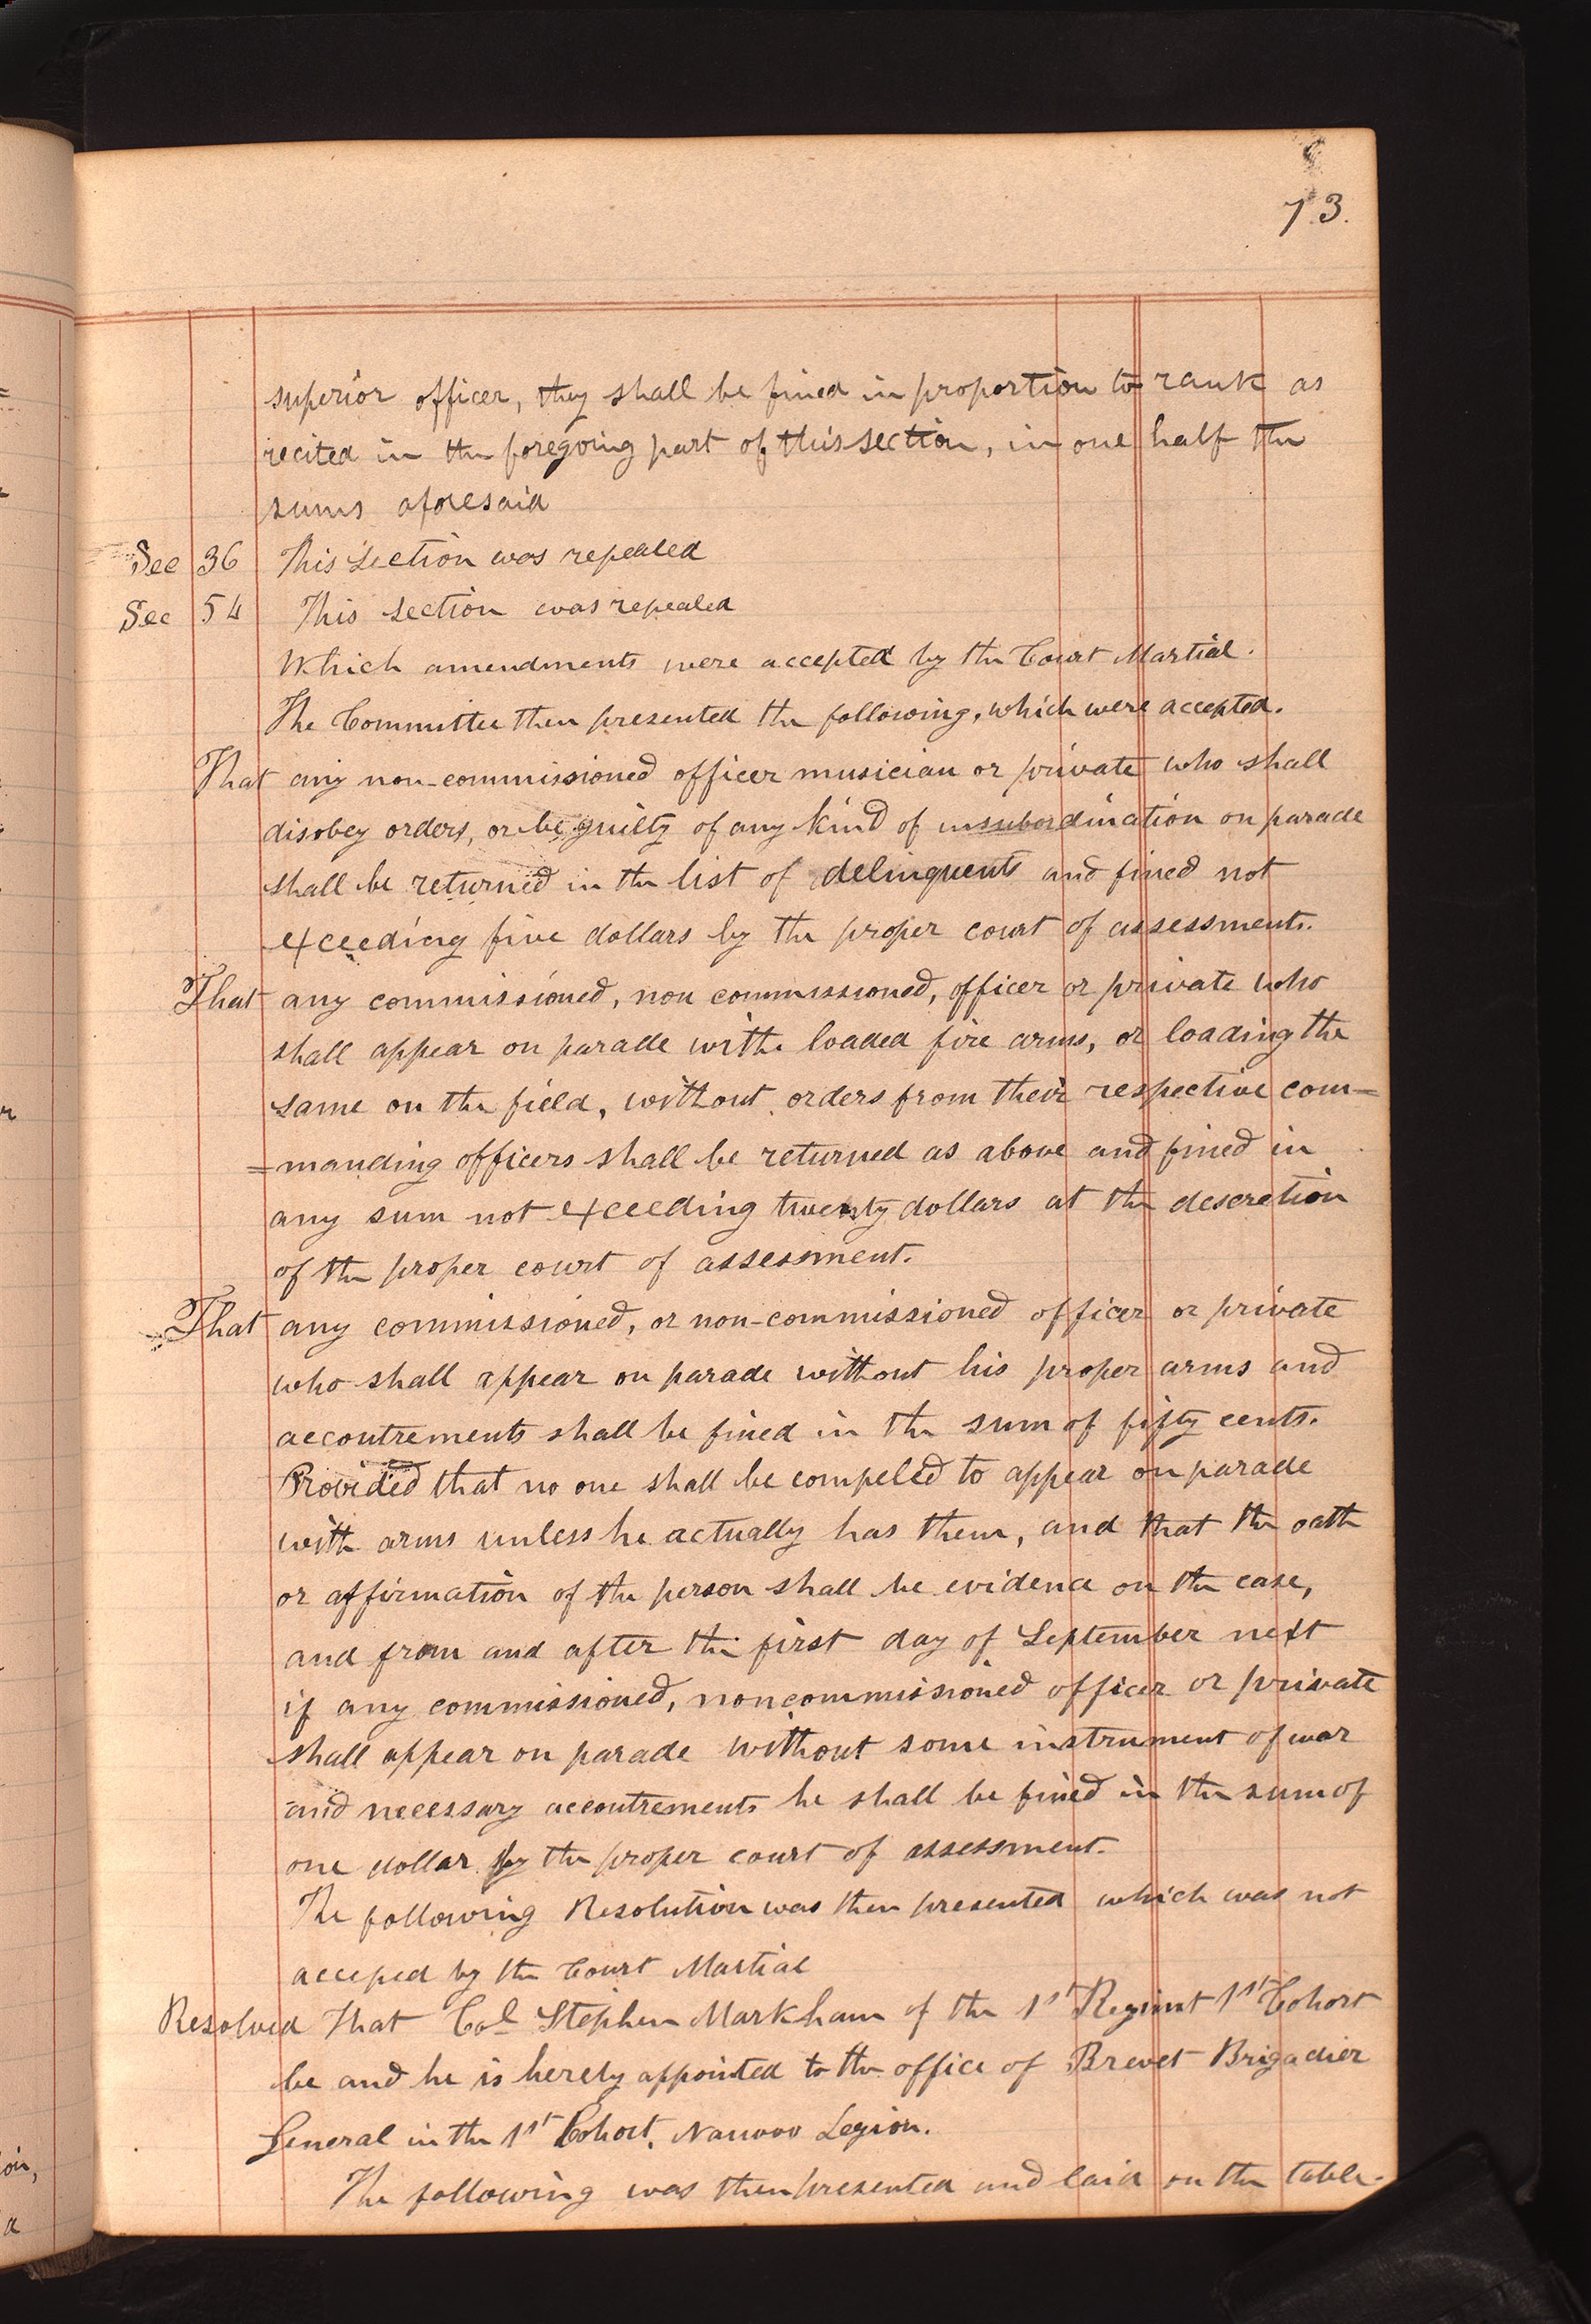 73.
superior officer, they shall be fined in proportion to rank as
recited in the foregoing part of this section, in one half the
sums aforesaid
Sec 36 This section was repealed
Sec 54 This section was repealed
Which amendments were accepted by the Court Martial.
The Committee then presented the following, which were accepted.
That any non-commissioned officer musician or private who shall
disobey orders, or be guilty of any kind of insubordination on parade
shall be returned in the list of delinquents and fined not
exceeding five dollars by the proper court of assessments.
That any commissioned, non commissioned, officer or private who
shall appear on parade with loaded fire arms, or loading the
same on the field, without orders from their respective com=
=manding officers shall be returned as above and fined in
any sum not exceeding twenty dollars at the descretion
of the proper court of assessment.
That any commissioned, or non-commissioned officer or private
who shall appear on parade without his proper arms and
accoutrements shall be fined in the sum of fifty cents.
Provided that no one shall be compeled to appear on parade
with arms unless he actually has them, and that the oath
or affirmation of the person shall be evidence on the case,
and from and after the first day of September next
if any commissioned, noncommissioned officer or private
shall appear on parade without some instrument of war
and necessary accoutrements he shall be fined in the sum of
one dollar by the proper court of assessment.
The following Resolution was then presented which was not
acceped by the Court Martial
Resolved That Col Stephen Markham of the 1st Regimnt 1st Cohort
be and he is hereby appointed to the office of Brevet Brigadier
General in the 1st Cohort, Nauvoo Legion.
The following was then presented and laid on the table.